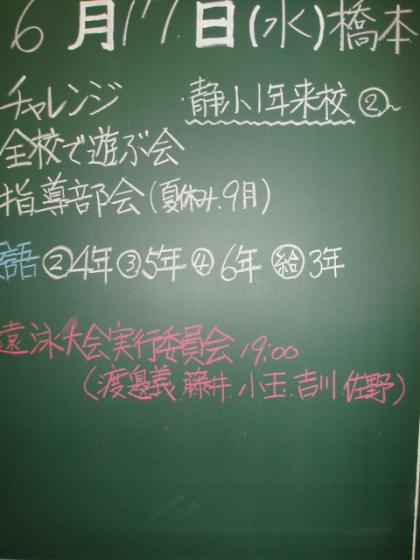 6月17日(水)橋本
チャレンジ 静小1年来校②〜
全校で遊ぶ会
指導部会(夏休み.9月)
語②4年③5年④6年 給3年
遠泳大会実行委員会19:00
(渡 義 藤井 小玉 吉川 佐野)